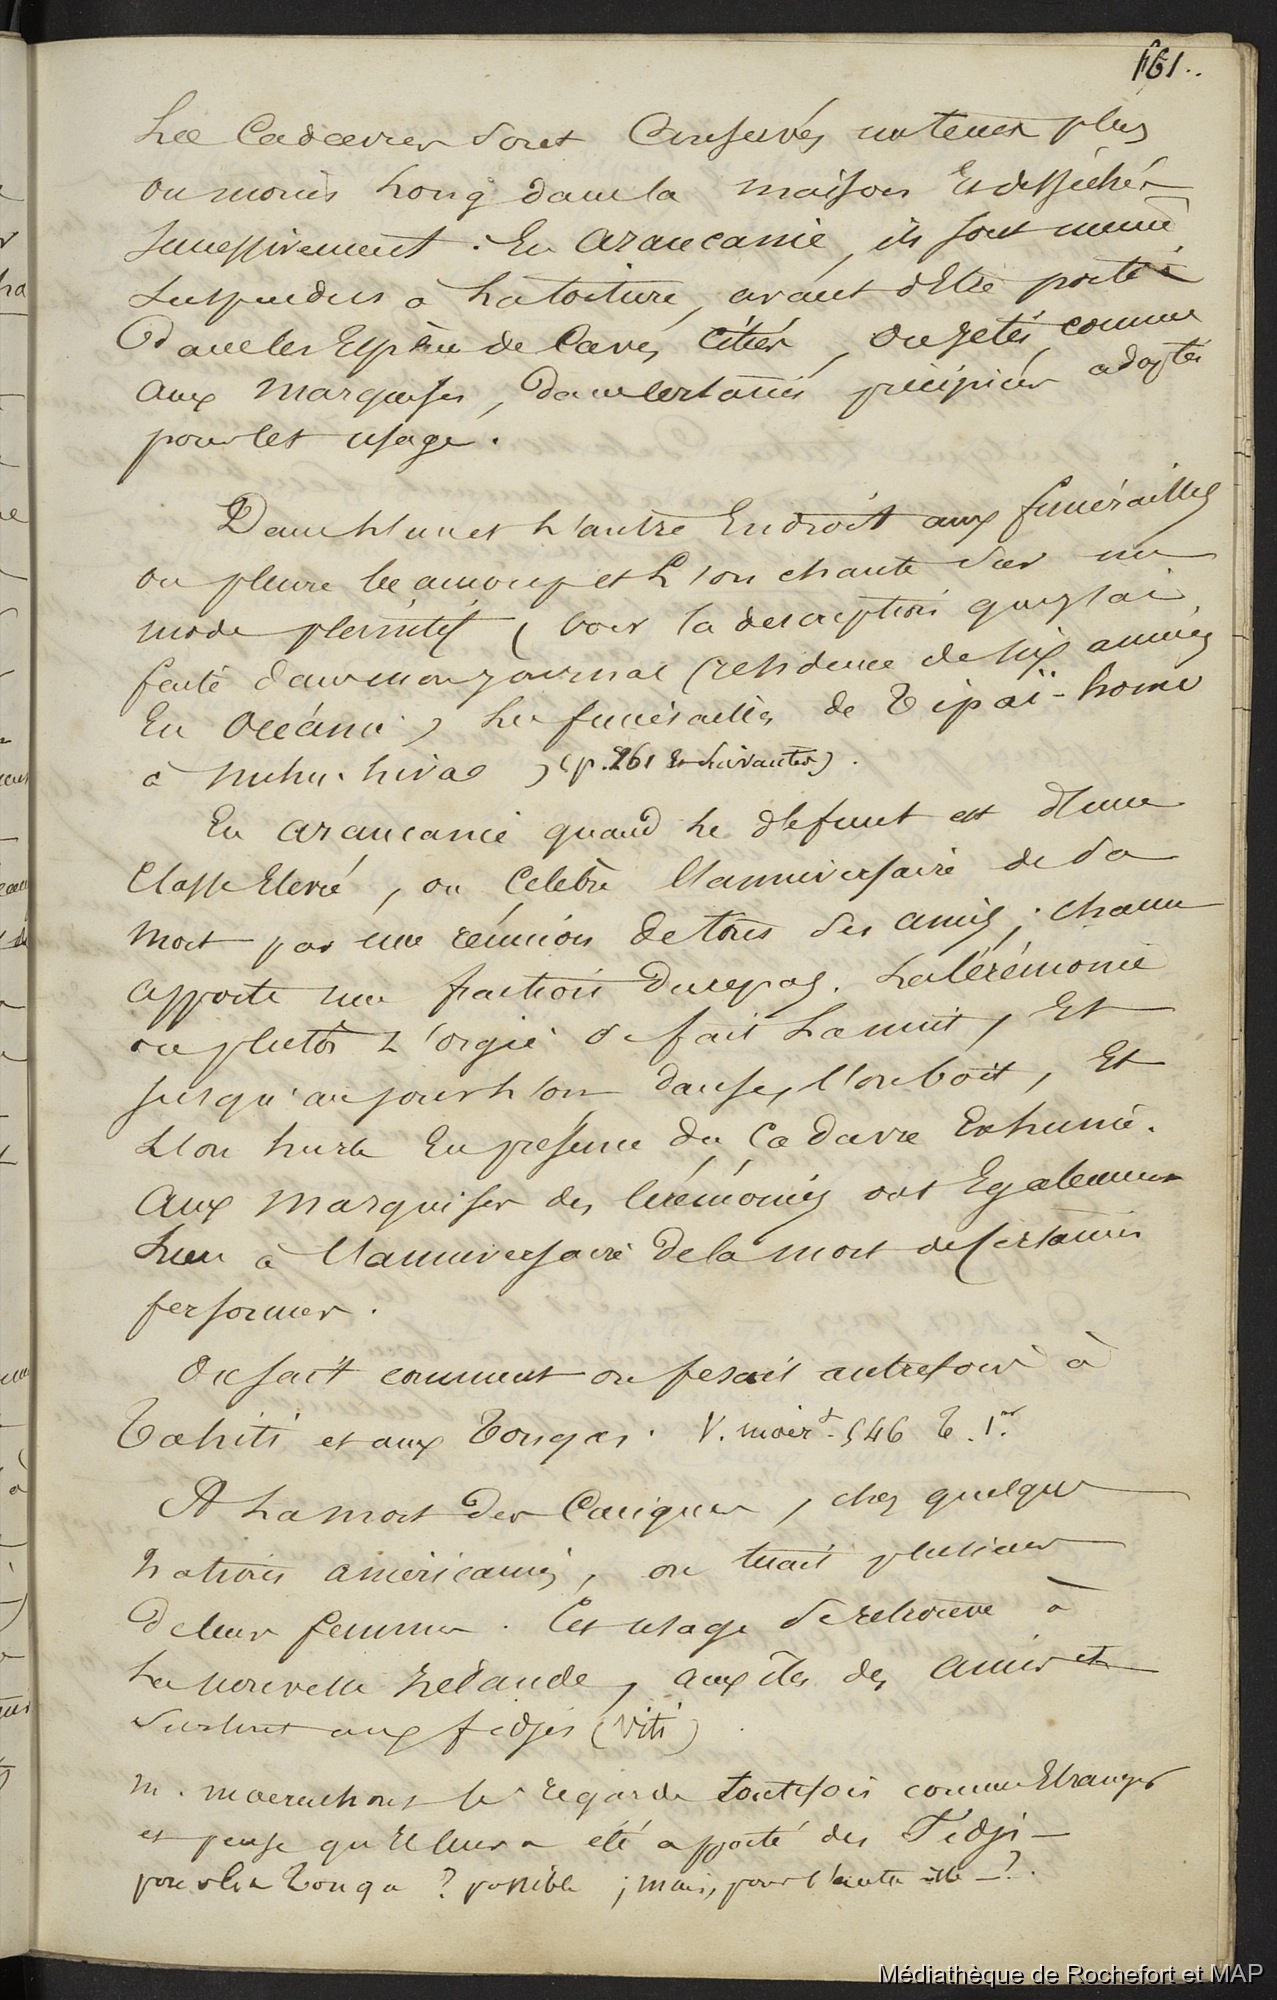 161..
Les Cadavres sont Conservés un tems plus
ou moins long dans la maison Et desséchés
successivement. En araucanie, ils sont même
suspendus à la toiture, avant d'être portés
Dans les Espèces de Caves Citées, ou jetés, comme
aux marquises, Dans certains précipices adoptés
pour cet usage.
Dans l'un et l'autre Endroit aux funérailles
on pleure beaucoup et l'on chante sur un
mode plaintif (voir la description que j'ai
faite dans mon journal (résidence de six années
En Océanie, les funérailles de Tipaï-home
à nuhu-hiva) (p. 261 Et suivantes).
En araucanie quand le défunt est d'une
Classe Elevée, on Célèbre l'anniversaire de sa
mort par une réunion de tous ses amis; chacun
apporte une fraction Du repas. La Cérémonie
ou plutôt l'orgie se fait la nuit, Et
jusqu'au jour l'on danse, l'on boit, Et
L'on hurle En présence du Cadavre Exhumé.
Aux marquises des Cérémonies ont Egalement
Lieu à l'anniversaire de la mort de Certaines
personnes.
On sait comment on fesait autrefois à
Tahiti et aux Tongas. V. moër.t 546 T. 1.er
A la mort Des Caciques, chez quelques
nations américaines, on tuait plusieurs
De leurs femmes. Cet usage se retrouve à
La nouvelle Zélande, aux îles des amis et
surtout aux fidjis (viti)
m. moerenhout le regarde toutefois comme Etranger
et pense qu'il leur a été apporté des Fidji —
pour les Tonga ? possible ; mais, pour l'autre île — ?.
Médiathèque de Rochefort et MAP